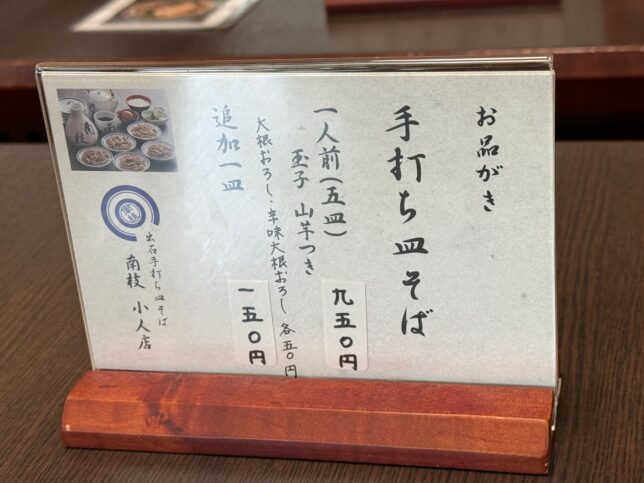 お品がき
手打ち皿そば
一人前(五皿)
玉子 山芋つき
九五〇円
大根おろし・辛味大根おろし 各五〇円
追加一皿
一五〇円
出石手打ち皿そば
南枝 小人店